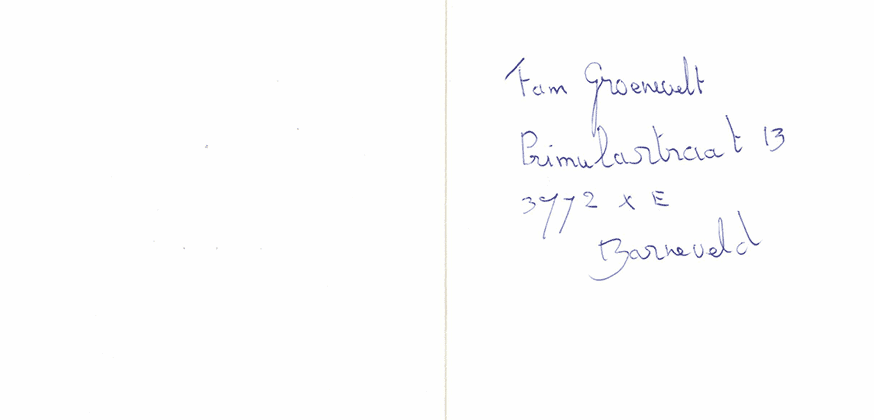 Fam Groenevelt
Primulastraat 13
3772 XE
Barneveld